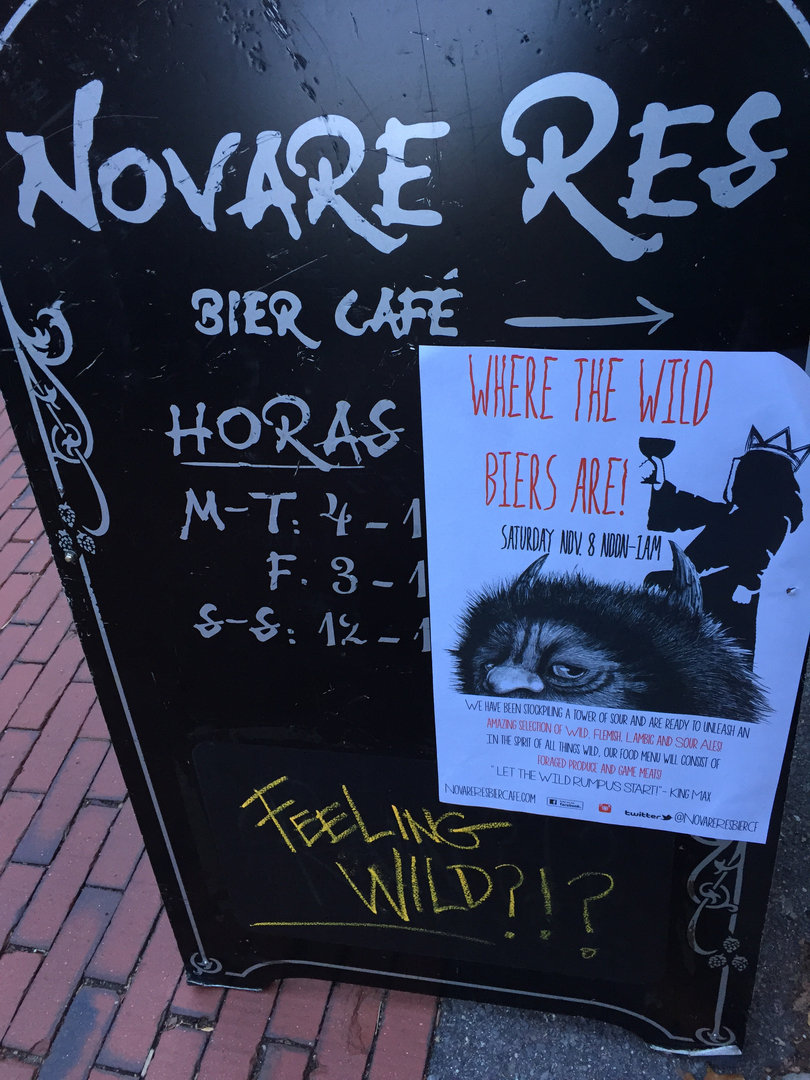 NOVARE RES
BIER CAFÉ
HORAS
M-T: 4-1
F. 3-1
S-S: 12-1
WHERE THE WILD
BIERS ARE!
SATURDAY NOV. 8 NOON-1AM
WE HAVE BEEN STOCKPILING A TOWER OF SOUR AND ARE READY TO UNLEASH AN
AMAZING SELECTION OF WILD, FLEMISH, LAMBIC AND SOUR ALES!
IN THE SPIRIT OF ALL THINGS WILD, OUR FOOD MENU WILL CONSIST OF
FORAGED PRODUCE AND GAME MEATS!
"LET THE WILD RUMPUS START!" - KING MAX
NOVARERESBIERCAFE.COM facebook twitter @NOVARERESBIERCF
FEELING
WILD?!?